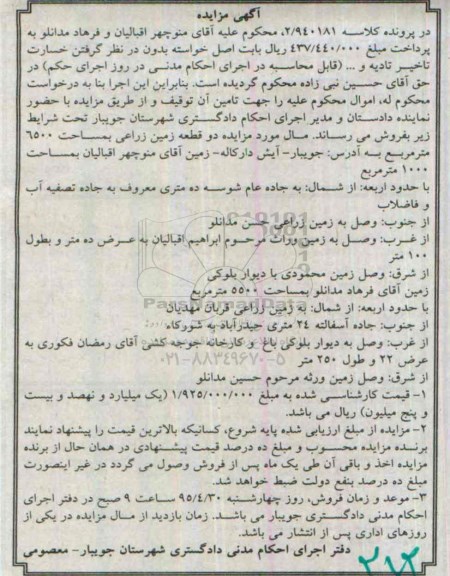 آگهی مزایده
در پرونده کلاسه ۲/۹۴۰۱۸۱، محکوم علیه آقای منوچهر اقبالیان و فرهاد مدانلو به
پرداخت مبلغ ۴۳۷/۴۴۰/۰۰۰ ریال بابت اصل خواسته بدون در نظر گرفتن خسارت
تاخیر تادیه و ... (قابل محاسبه در اجرای احکام مدنی در روز اجرای حکم) در
حق آقای حسین نبی زاده محکوم گردیده است. بنابراین این اجرا بنا به درخواست
محکوم له، اموال محکوم علیه را جهت تامین آن توقیف و از طریق مزایده با حضور
نماینده دادستان و مدیر اجرای احکام دادگستری شهرستان جویبار تحت شرایط
زیر بفروش می رساند. مال مورد مزایده دو قطعه زمین زراعی بمساحت ۶۵۰۰
مترمربع به آدرس: جویبار- آیش دارکاله- زمین آقای منوچهر اقبالیان بمساحت
۱۰۰۰ مترمربع
با حدود اربعه: از شمال: به جاده عام شوسه ده متری معروف به جاده تصفیه آب
و فاضلاب
از جنوب: وصل به زمین زراعی حسن مدانلو
از غرب: وصل به زمین وراث مرحوم ابراهیم اقبالیان به عرض ده متر و بطول
۱۰۰ متر
از شرق: وصل زمین محمودی با دیوار بلوکی
زمین آقای فرهاد مدانلو بمساحت ۵۵۰۰ مترمربع
با حدود اربعه: از شمال: به زمین زراعی قربان مهدیان
از جنوب: جاده آسفالته ۲۴ متری حیدرآباد به شورکاه
از غرب: وصل به دیوار بلوکی باغ و کارخانه جوجه کشی آقای رمضان فکوری به
عرض ۲۲ و طول ۲۵۰ متر
۰۲۱-۸۸۳۴۹۶۷۰-۵
از شرق: وصل زمین ورثه مرحوم حسین مدانلو
۱- قیمت کارشناسی شده به مبلغ ۱/۹۲۵/۰۰۰/۰۰۰ (یک میلیارد و نهصد و بیست
و پنج میلیون) ریال می باشد.
۲- مزایده از مبلغ ارزیابی شده پایه شروع، کسانیکه بالاترین قیمت را پیشنهاد نمایند
برنده مزایده محسوب و مبلغ ده درصد قیمت پیشنهادی در همان حال از برنده
مزایده اخذ و باقی آن طی یک ماه پس از فروش وصول می گردد در غیر اینصورت
مبلغ ده درصد بنفع دولت ضبط خواهد شد.
۳- موعد و زمان فروش، روز چهارشنبه ۹۵/۴/۳۰ ساعت ۹ صبح در دفتر اجرای
احکام مدنی دادگستری جویبار می باشد. زمان بازدید از مال مزایده در یکی از
روزهای اداری پس از انتشار می باشد.
دفتر اجرای احکام مدنی دادگستری شهرستان جویبار- معصومی
۲۱۲